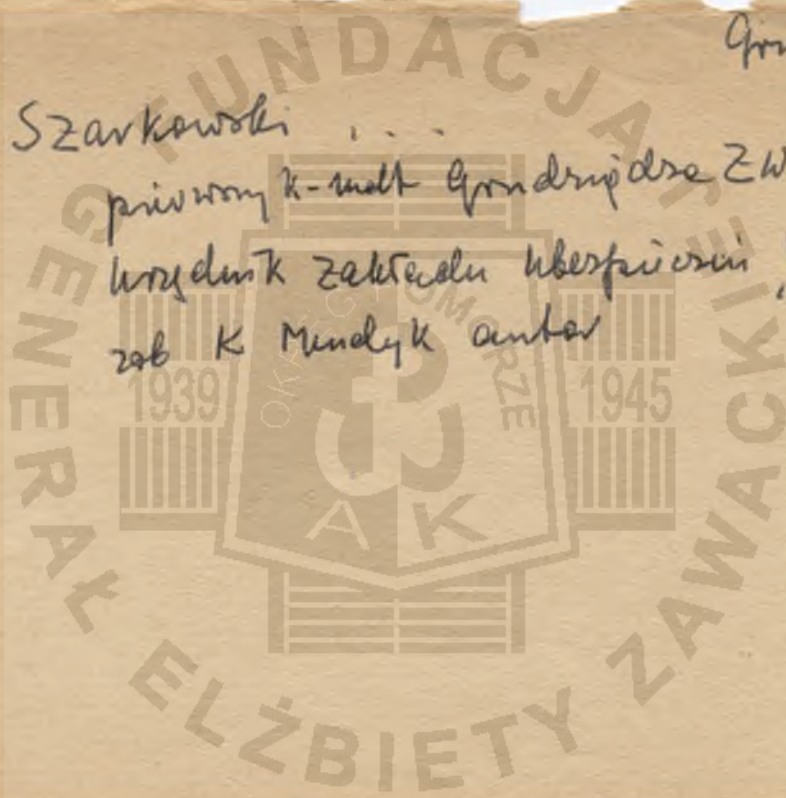 Gru
Szarkowski ...
pierwszy k-mdt Grudziądza ZW
urzędnik Zakładu Ubezpieczeń,
zob K Mendyk autor
FUNDACJA GENERAŁ ELŻBIETY ZAWACKIEJ
OKRĘG POMORZE
1939 1945
AK